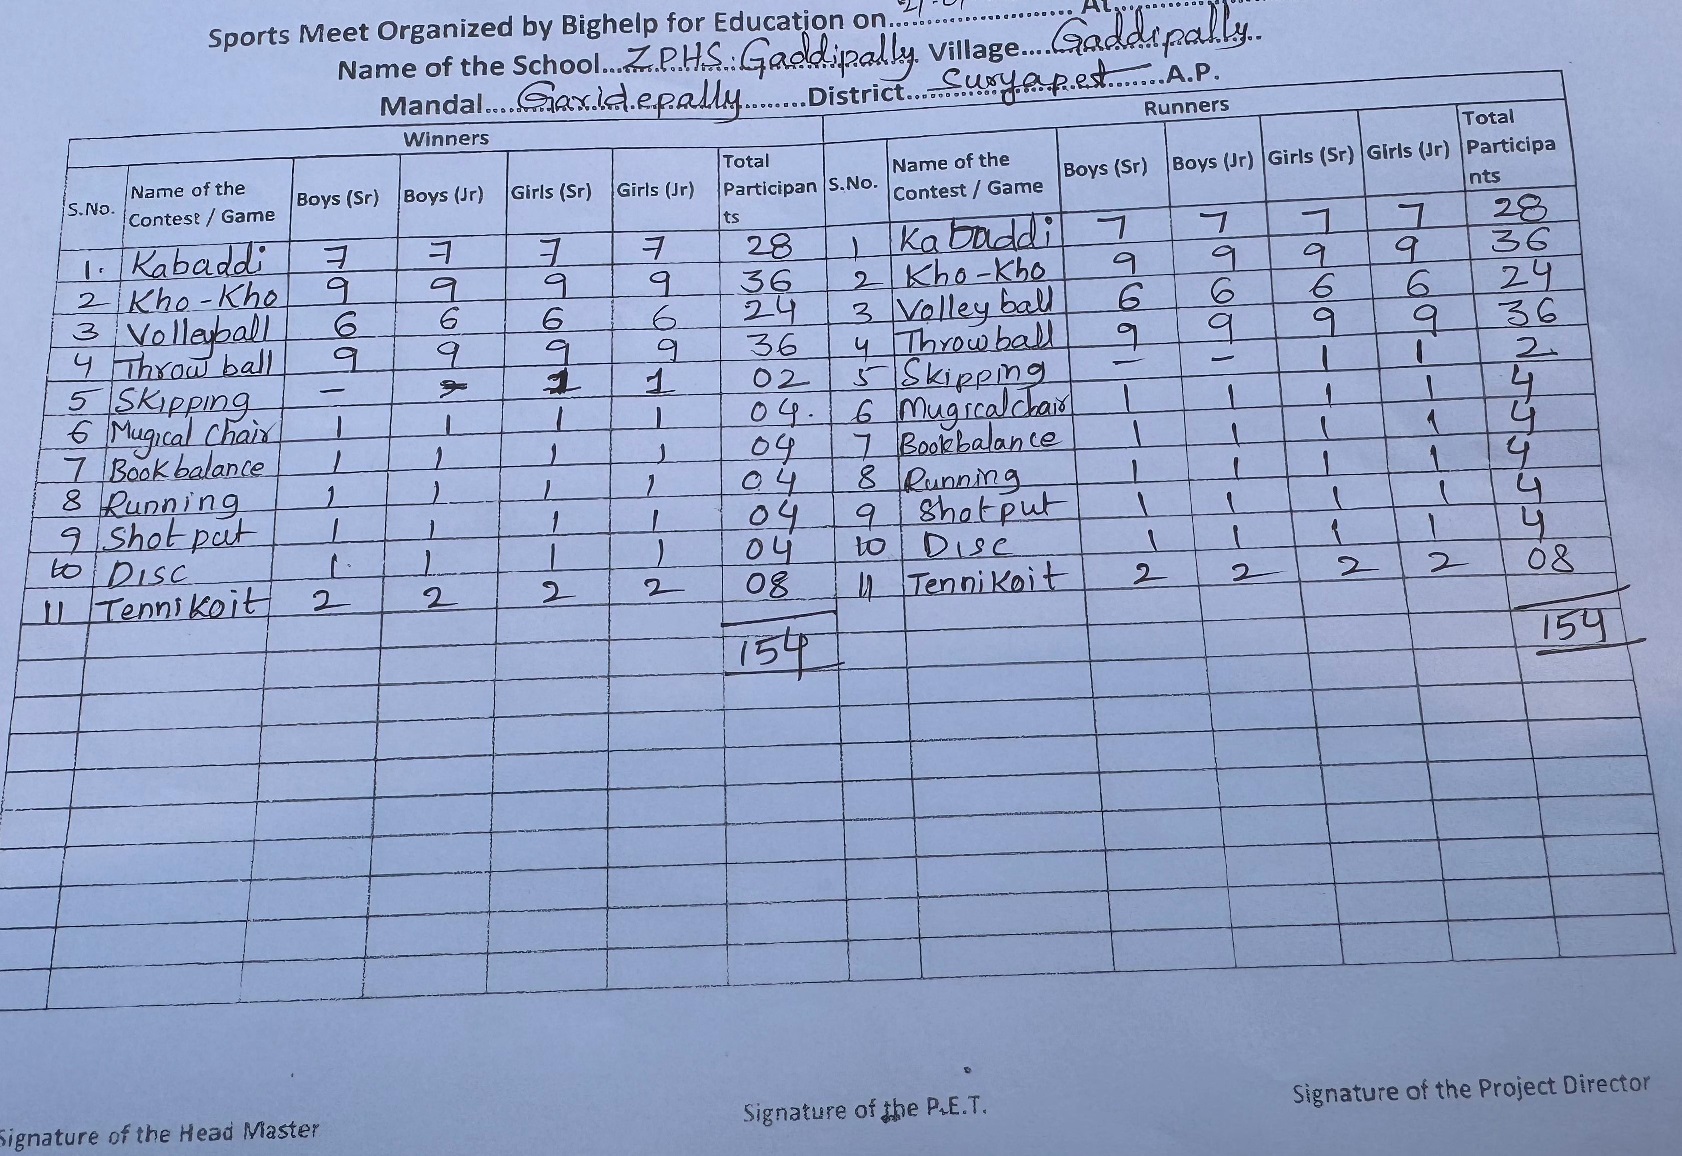 Sports Meet Organized by Bighelp for Education on........................ At
Name of the School...Z.P.H.S. Gaddipally. Village....Gaddipally..
Mandal....Garidepally........District...Suryapest.......A.P.
Winners Runners
S.No. Name of the Contest / Game Boys (Sr) Boys (Jr) Girls (Sr) Girls (Jr) Total Participants S.No. Name of the Contest / Game Boys (Sr) Boys (Jr) Girls (Sr) Girls (Jr) Total Participants
1. Kabaddi 7 7 7 7 28 1 Kabaddi 7 7 7 7 28
2 Kho-Kho 9 9 9 9 36 2 Kho-Kho 9 9 9 9 36
3 Volleyball 6 6 6 6 24 3 Volley ball 6 6 6 6 24
4 Throw ball 9 9 9 9 36 4 Throwball 9 9 9 9 36
5 Skipping - - 1 1 02 5 Skipping - - 1 1 2.
6 Mugical Chair 1 1 1 1 04. 6 Mugicalchair 1 1 1 1 4
7 Book balance 1 1 1 1 04 7 Bookbalance 1 1 1 1 4
8 Running 1 1 1 1 04 8 Running 1 1 1 1 4
9 Shot put 1 1 1 1 04 9 Shot put 1 1 1 1 4
10 Disc 1 1 1 1 04 10 Disc 1 1 1 1 4
11 Tennikoit 2 2 2 2 08 11 Tennikoit 2 2 2 2 08
154 154
Signature of the Head Master Signature of the P.E.T. Signature of the Project Director